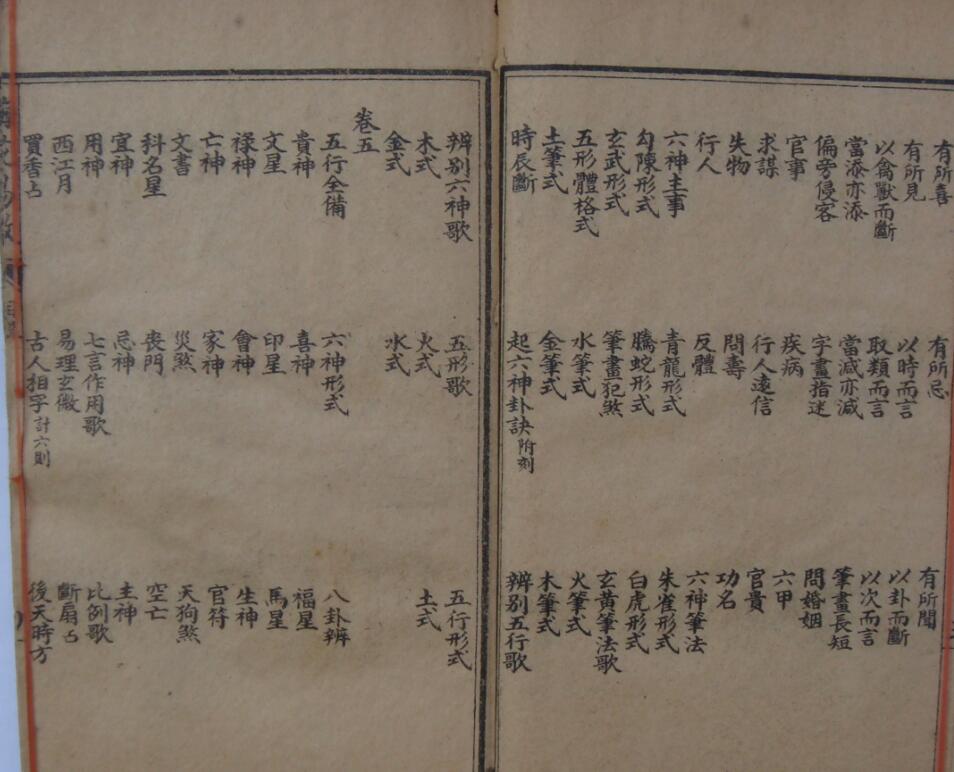 有所喜 有所忌 有所聞
有所見 以時而言 以卦而斷
以禽獸而斷 取類而言 以次而言
當添亦添 當減亦減 筆畫長短
偏旁侵客 字畫指迷 問婚姻
官事 疾病 六甲
求謀 行人遠信 官貴
失物 問壽 功名
行人 反體 六神筆法
六神主事 青龍形式 朱雀形式
勾陳形式 騰蛇形式 白虎形式
玄武形式 筆畫犯煞 玄黃筆法歌
五形體格式 水筆式 火筆式
土筆式 金筆式 木筆式
時辰斷 起六神卦訣附刻 辨別五行歌
辨別六神歌 五形歌 五行形式
木式 火式 土式
金式 水式
卷五
五行全備 六神形式 八卦辨
貴神 喜神 福星
文星 印星 馬星
祿神 會神 生神
亡神 家神 官符
文書 災煞 天狗煞
科名星 喪門 空亡
宜神 忌神 主神
用神 七言作用歌 比例歌
西江月 易理玄微 斷扇占
買香占 古人相字計六則 後天時方